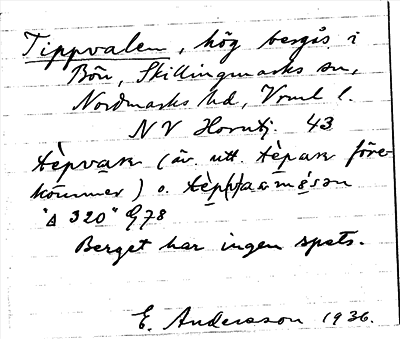 Tippvalen, hög bergås i
Bön, Skillingmarks sn,
Nordmarks hd, Vrml l.
NV Horntj. 43
tèpvaɴ (äv. utt. tèpaɴ före-
kommer) o.
"Δ 320" G78
Berget har ingen spets.
E. Andersson 1936.